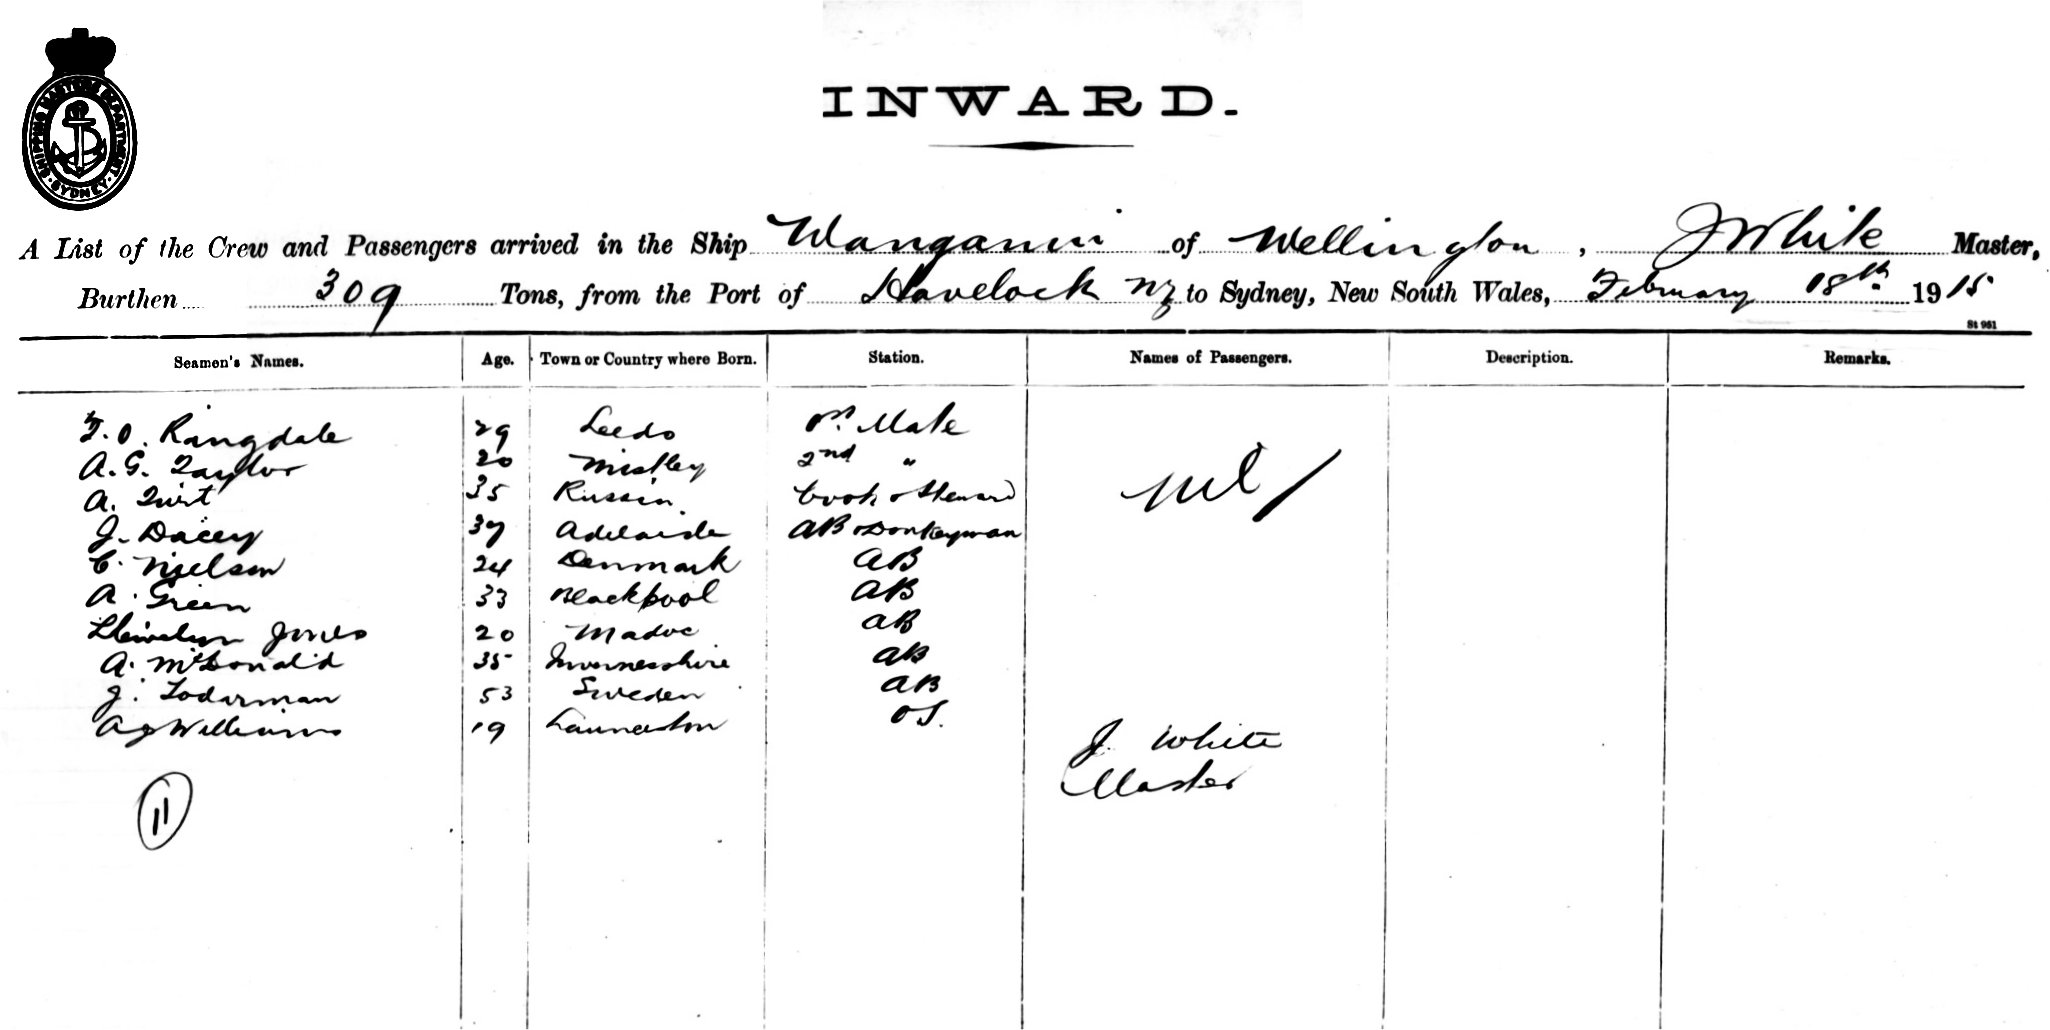 SHIPPING MASTERS DEPARTMENT · SYDNEY ·
INWARD.
A List of the Crew and Passengers arrived in the Ship Wanganui of Wellington, J White Master,
Burthen 309 Tons, from the Port of Havelock NZ to Sydney, New South Wales, February 18th 1915
St 961
Seamen's Names. Age. Town or Country where Born. Station. Names of Passengers. Description. Remarks.
F. O. Ringdale 29 Leeds Mate
A. G. Taylor 20 Mistley 2nd "
A. 35 Russia Cook & Steward
J. Dacey 37 Adelaide AB & Donkeyman
C. Nielsen 24 Denmark AB
A. Green 33 Blackpool AB
Llewelyn Jones 20 Madoc AB
A. McDonald 35 Invernesshire AB
J. 53 Sweden AB
A J Williams 19 Launceston OS.
nil
J. White
Master
11